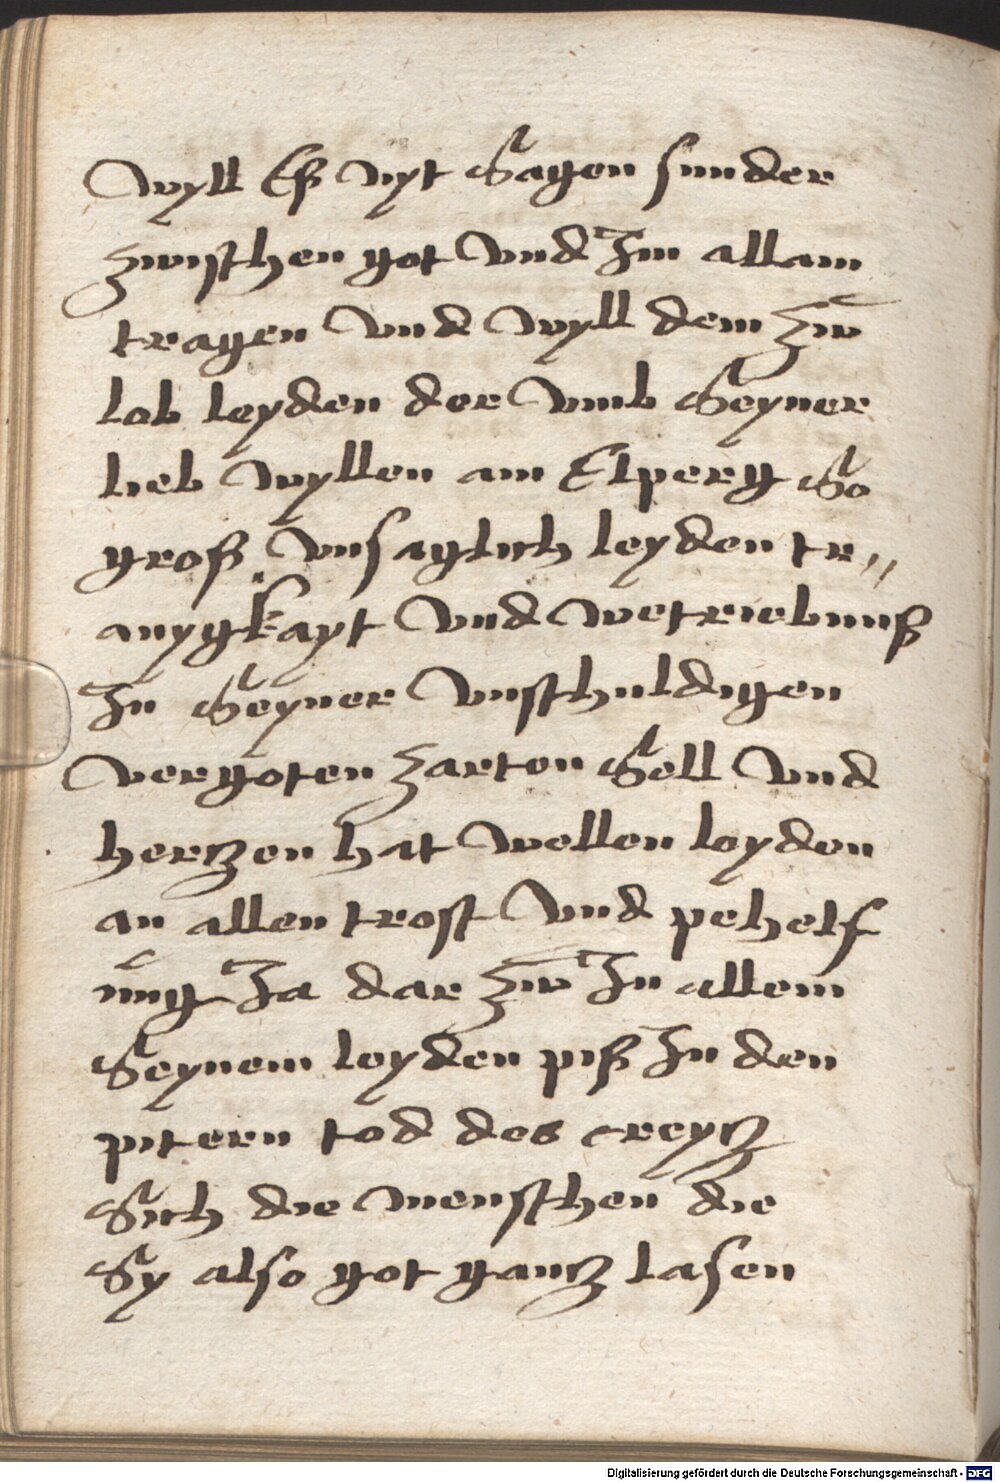 wyll Eß nyt Sagen sunder
zwischen got vnd Im allain
tragen vnd wyll dem zw
lob leyden der vmb Seyner
lieb wyllen am Elperg So
groß vnsaglich leyden tr〃
auygkayt vnd wetriebnuß
In Seyner vnschuldigen
vergoten zarten Sell vnd
herczen hat wellen leyden
an allen trost vnd pehelf
nug Ja dar zw In allem
Seynem leyden piß In den
pitern tod des creycz
Sich die menschen die
Sy also got gancz lasen
Digitalisierung gefördert durch die Deutsche Forschungsgemeinschaft - DFG